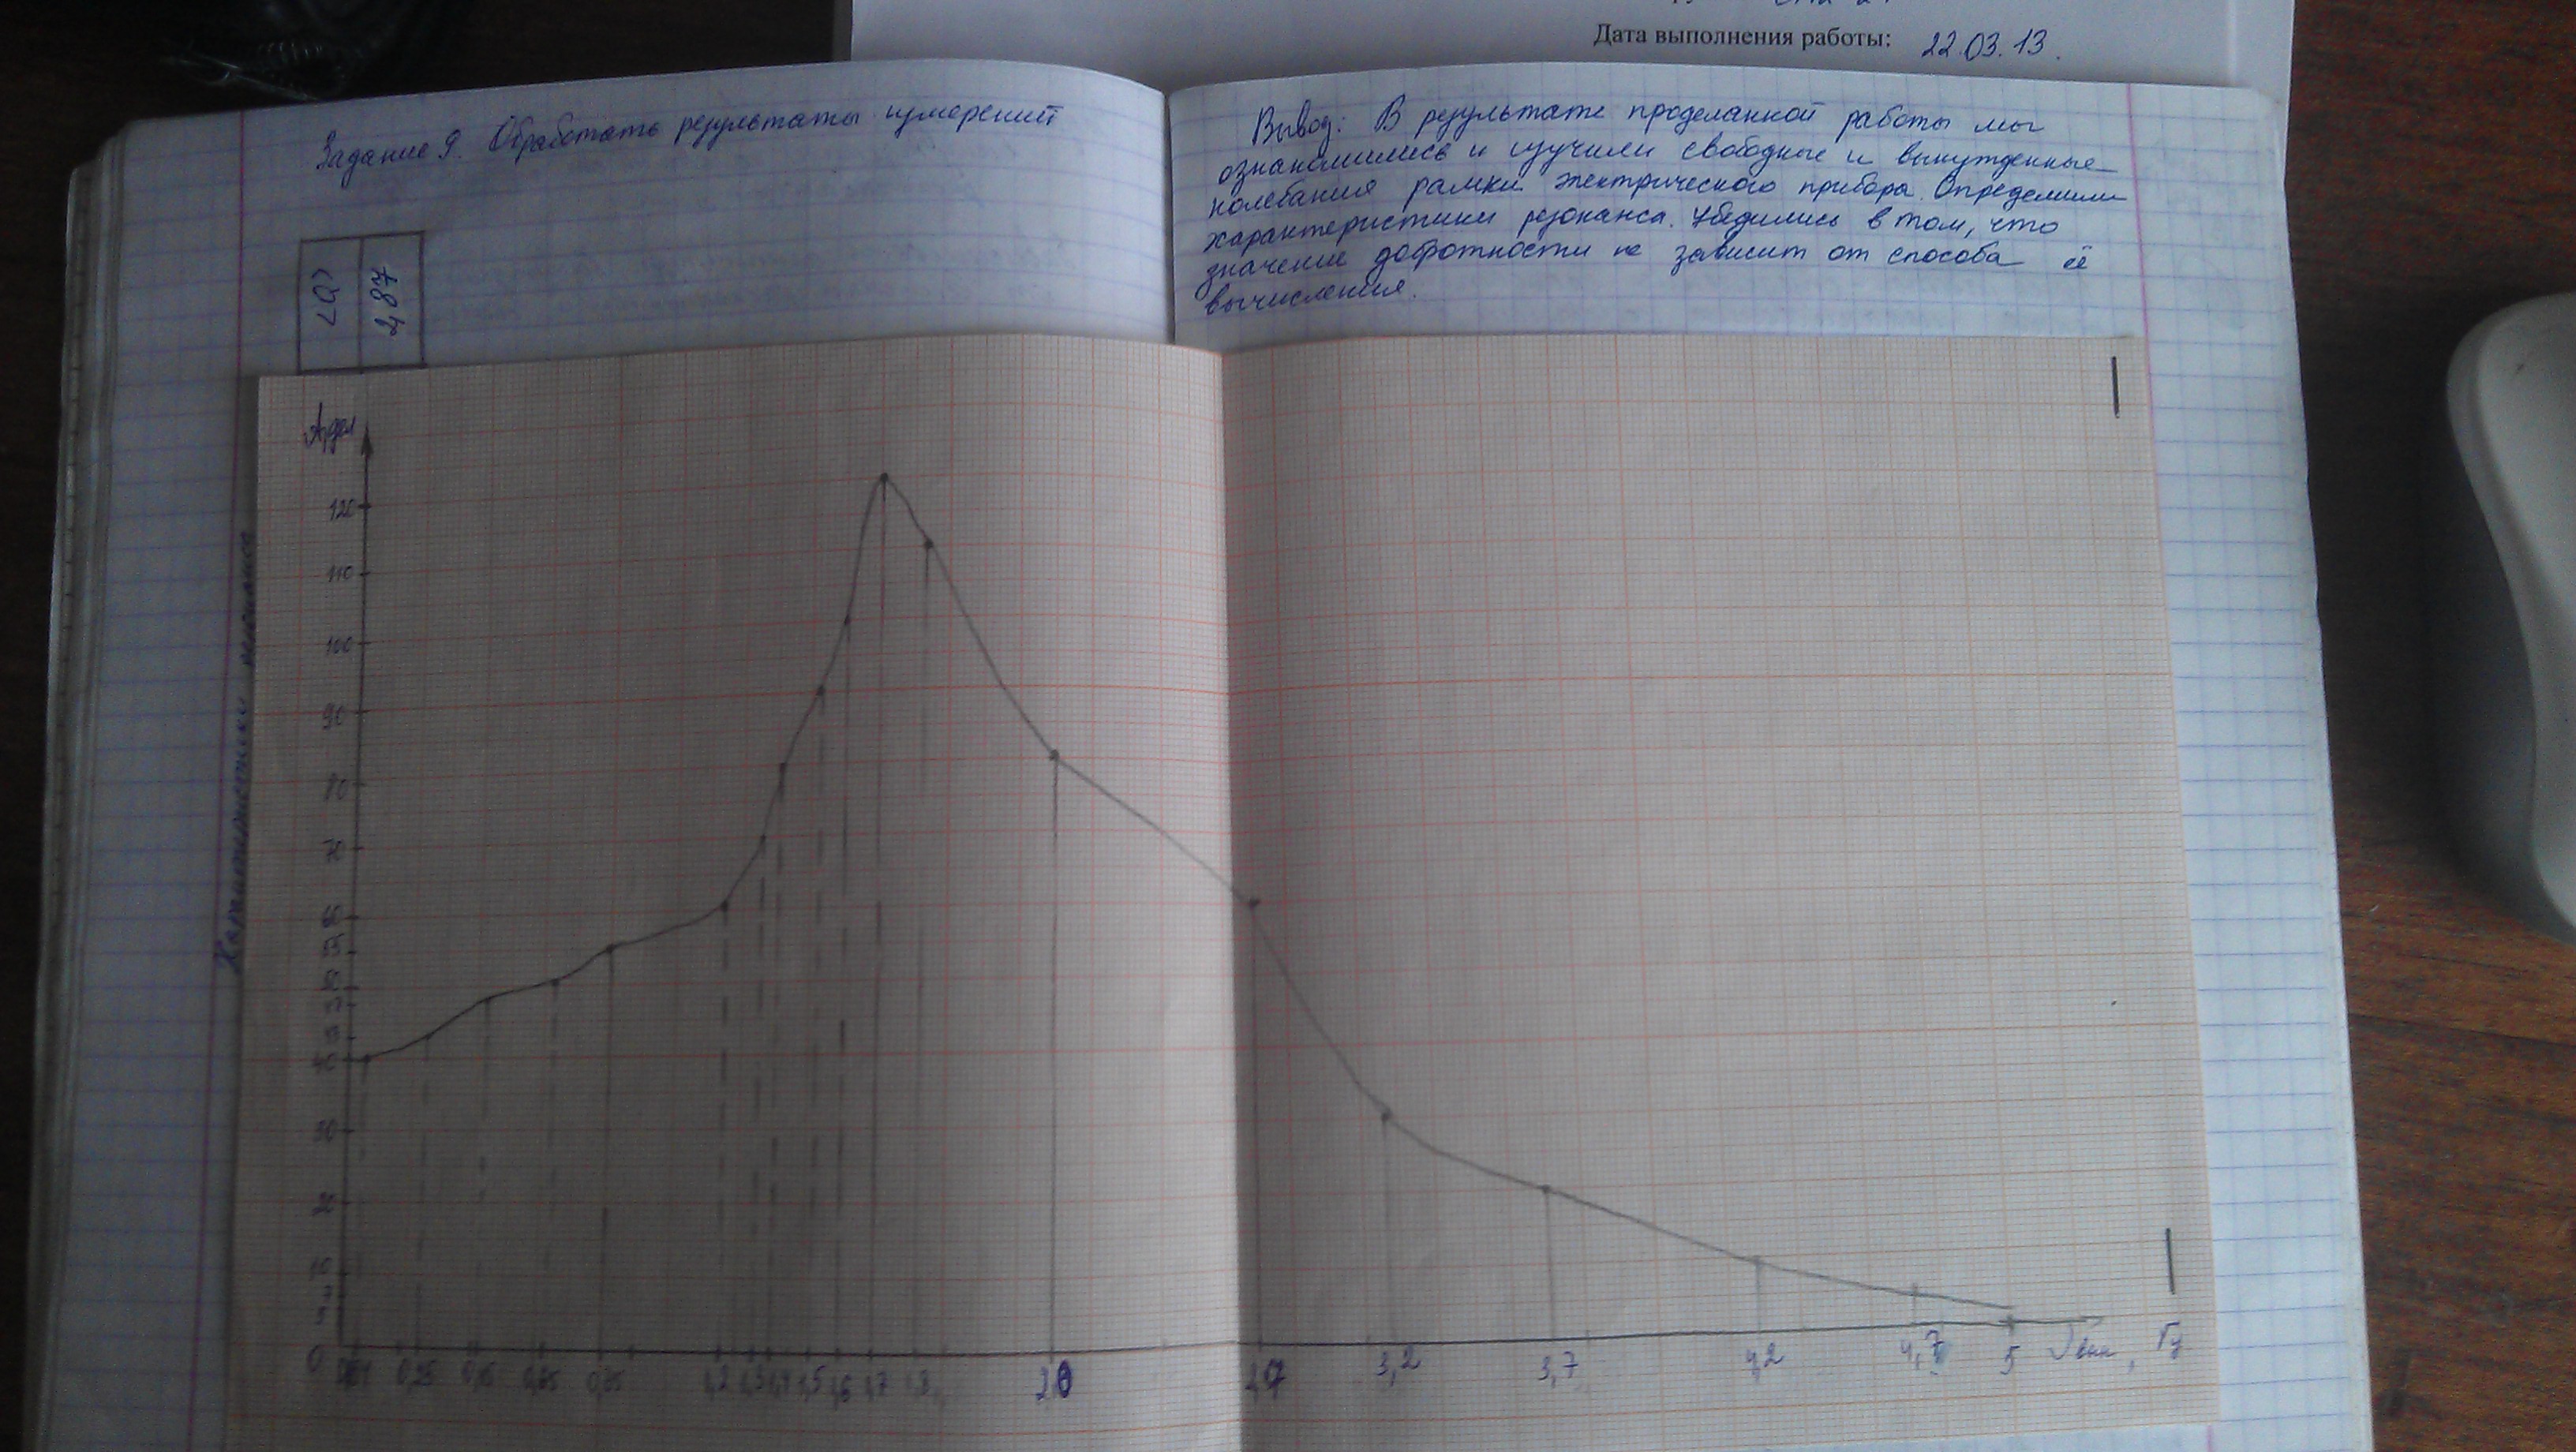 Дата выполнения работы: 22.03.13.
Задание 9. Обработать результаты измерений
<Q>
2,87
Вывод: В результате проделанной работы мы
ознакомились и изучили свободные и вынужденные
колебания рамки электрического прибора. Определили
характеристики резонанса. Убедились в том, что
значение добротности не зависит от способа её
вычисления.
Характеристики резонанса
А, дел
120
110
100
90
80
70
60
55
50
47
43
40
30
20
10
0
0,25 1,2 1,3 1,4 1,5 1,6 1,7 1,8 2,7 3,2 3,7 4,2 4,7 5 νвын, Гц